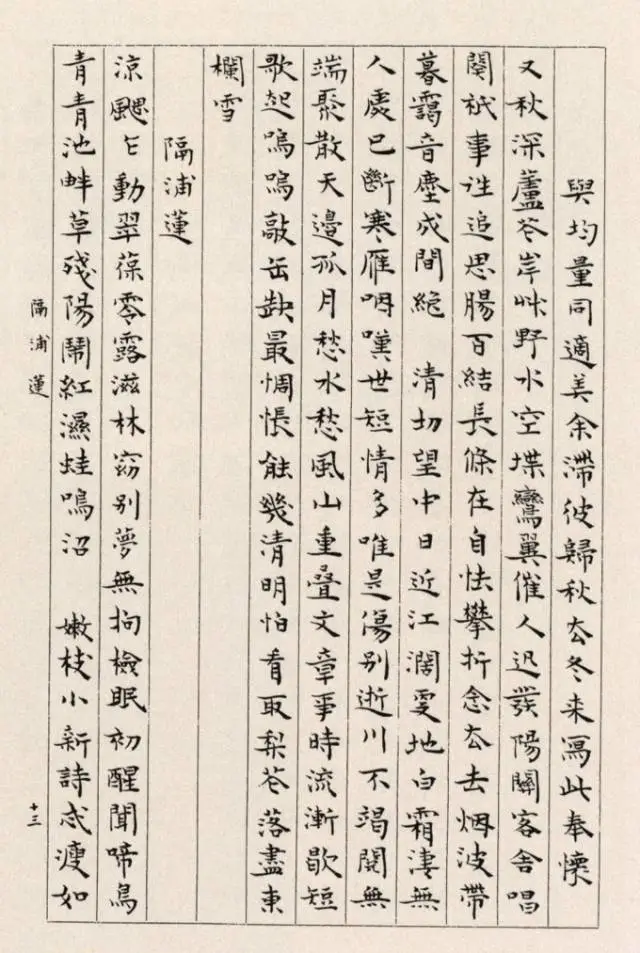 與均量同適美余滯彼歸秋去冬来寫此奉懷
又秋深蘆花岸艸野水空堞鸞翼催人迟發陽關客舍唱
闋祇事谁追思腸百結長條在自怯攀折念去去烟波带
暮靄音塵成間絶　清切望中日近江濶雯地白霜淒無
人處已斷寒雁咽嘆世短情多唯是傷別逝川不竭閑無
端聚散天邊孤月愁水愁風山重疊文章事時流漸歇短
歌起嗚嗚敲缶缺最惆悵能幾清明怕看取梨花落盡東
欄雪
隔浦蓮
涼颸乍動翠葆零露滋林窈别夢無拘檢眠初醒聞啼鳥
青青池畔草殘陽鬧紅濕蛙鳴沼　嫩枝小新詩忒瘦如
隔浦蓮
十三